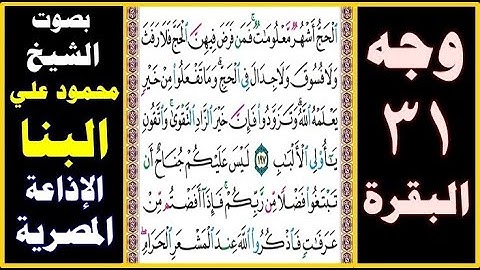 وجه
٣١
البقرة
ٱلْحَجُّ أَشْهُرٌ مَّعْلُومَٰتٌ ۚ فَمَن فَرَضَ فِيهِنَّ ٱلْحَجَّ فَلَا رَفَثَ
وَلَا فُسُوقَ وَلَا جِدَالَ فِى ٱلْحَجِّ ۗ وَمَا تَفْعَلُوا۟ مِنْ خَيْرٍ
يَعْلَمْهُ ٱللَّهُ ۗ وَتَزَوَّدُوا۟ فَإِنَّ خَيْرَ ٱلزَّادِ ٱلتَّقْوَىٰ ۚ وَٱتَّقُونِ
يَٰٓأُو۟لِى ٱلْأَلْبَٰبِ ١٩٧ لَيْسَ عَلَيْكُمْ جُنَاحٌ أَن
تَبْتَغُوا۟ فَضْلًا مِّن رَّبِّكُمْ ۚ فَإِذَآ أَفَضْتُم مِّنْ
عَرَفَٰتٍ فَٱذْكُرُوا۟ ٱللَّهَ عِندَ ٱلْمَشْعَرِ ٱلْحَرَامِ ۖ
بصوت
الشيخ
محمود علي
البنا
الإذاعة
المصرية